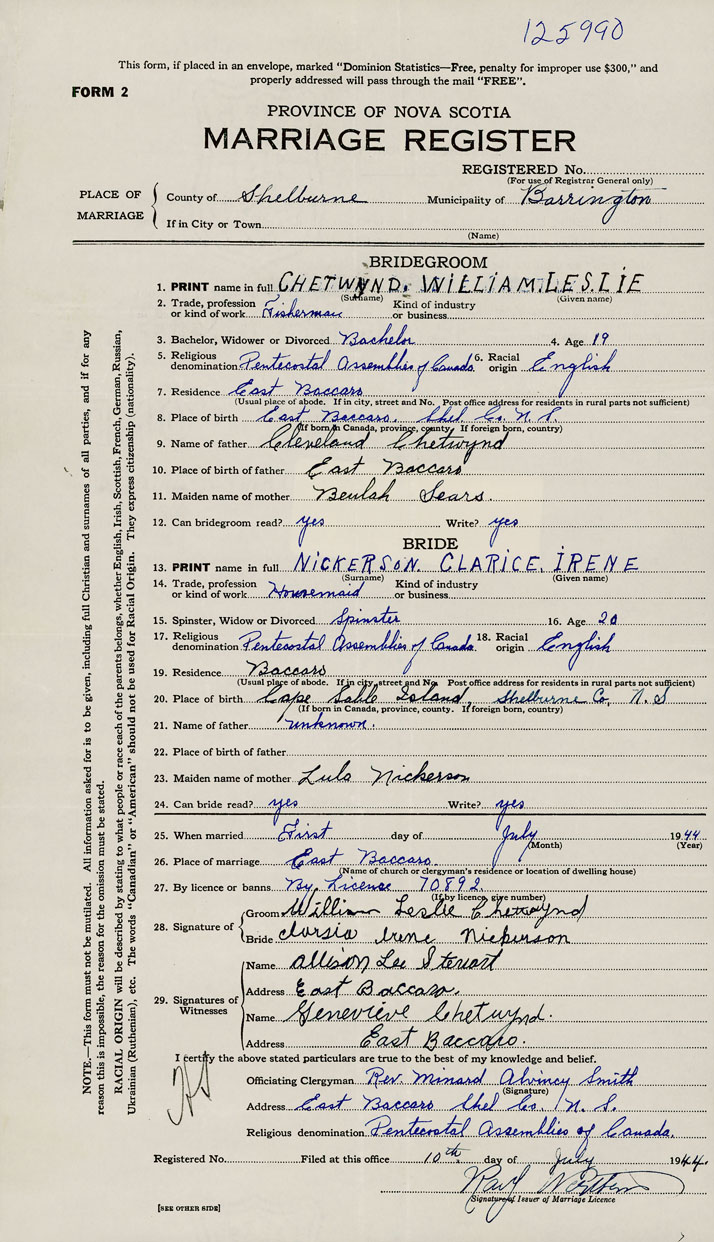 125990
This form, if placed in an envelope, marked "Dominion Statistics—Free, penalty for improper use $300," and
properly addressed will pass through the mail "FREE".
FORM 2
PROVINCE OF NOVA SCOTIA
MARRIAGE REGISTER
REGISTERED No.
(For use of Registrar General only)
PLACE OF MARRIAGE
County of Shelburne Municipality of Barrington
If in City or Town
(Name)
BRIDEGROOM
1. PRINT name in full CHETWYND. WILLIAM. LESLIE
(Surname) (Given name)
2. Trade, profession or kind of work Fisherman Kind of industry or business
3. Bachelor, Widower or Divorced Bachelor 4. Age 19
5. Religious denomination Pentecostal Assemblies of Canada. 6. Racial origin English
7. Residence East Baccaro
(Usual place of abode. If in city, street and No. Post office address for residents in rural parts not sufficient)
8. Place of birth East Baccaro, Shel Co. N. S.
(If born in Canada, province, county. If foreign born, country)
9. Name of father Cleveland Chetwynd
10. Place of birth of father East Baccaro
11. Maiden name of mother Beulah Sears.
12. Can bridegroom read? yes Write? yes
BRIDE
13. PRINT name in full NICKERSON. CLARICE. IRENE
(Surname) (Given name)
14. Trade, profession or kind of work Housemaid Kind of industry or business
15. Spinster, Widow or Divorced Spinster 16. Age 20
17. Religious denomination Pentecostal Assemblies of Canada 18. Racial origin English
19. Residence Baccaro
(Usual place of abode. If in city, street and No. Post office address for residents in rural parts not sufficient)
20. Place of birth Cape Sable Island, Shelburne Co, N. S
(If born in Canada, province, county. If foreign born, country)
21. Name of father unknown.
22. Place of birth of father
23. Maiden name of mother Lula Nickerson
24. Can bride read? yes Write? yes
25. When married First day of July 1944
(Month) (Year)
26. Place of marriage East Baccaro.
(Name of church or clergyman's residence or location of dwelling house)
27. By licence or banns By License 70892
(If by licence, give number)
28. Signature of
Groom William Leslie Chetwynd
Bride Irene Nickerson
29. Signatures of Witnesses
Name Allison Lee Stewart
Address East Baccaro.
Name Genevieve Chetwynd.
Address East Baccaro.
I certify the above stated particulars are true to the best of my knowledge and belief.
Officiating Clergyman Rev. Minard Alvincy Smith
(Signature)
Address East Baccaro Shel Co. N. S.
Religious denomination Pentecostal Assemblies of Canada.
Registered No. Filed at this office 10th day of July 1944.
Signature of Issuer of Marriage Licence
[SEE OTHER SIDE]
NOTE.—This form must not be mutilated. All information asked for is to be given, including full Christian and surnames of all parties, and if for any
reason this is impossible, the reason for the omission must be stated.
RACIAL ORIGIN will be described by stating to what people or race each of the parents belongs, whether English, Irish, Scottish, French, German, Russian,
Ukrainian (Ruthenian), etc. The words "Canadian" or "American" should not be used for Racial Origin. They express citizenship (nationality).